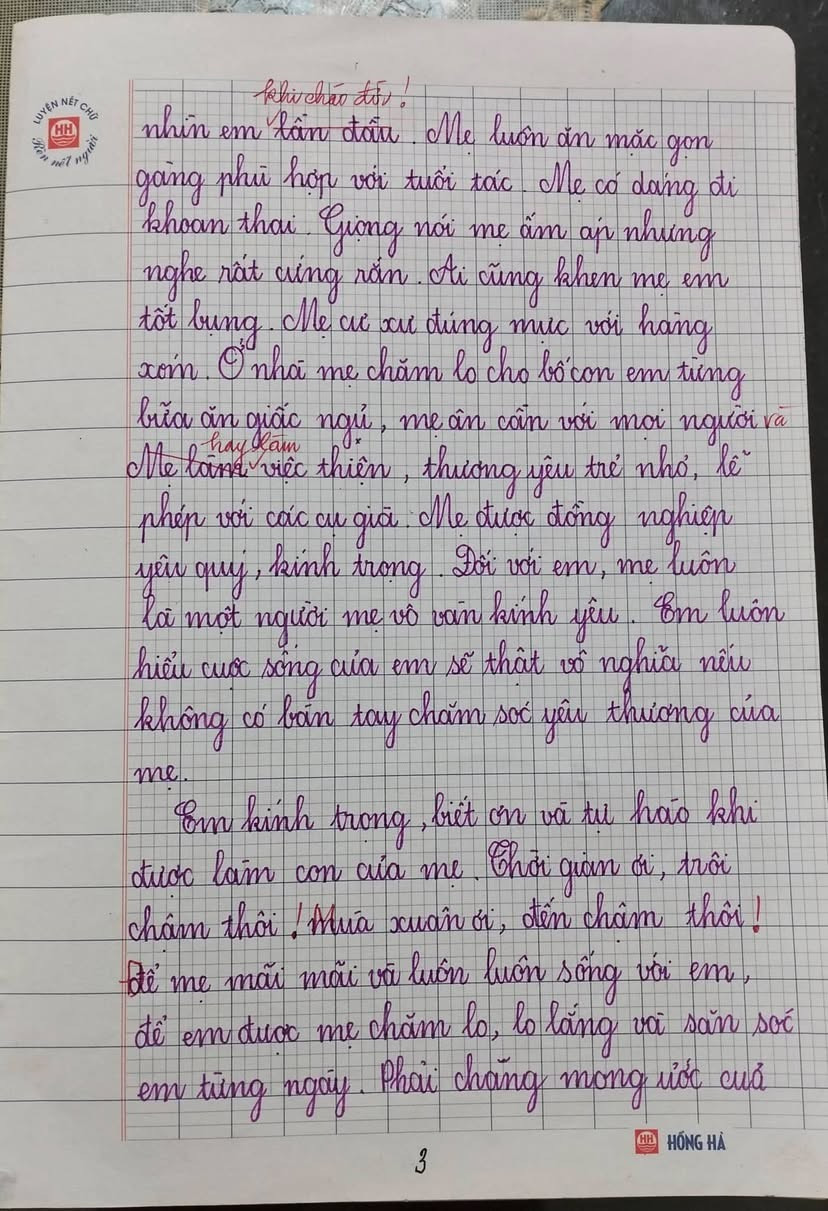 LUYỆN NÉT CHỮ
HH
Rèn nết người
khi chào đời!
nhìn em lần đầu. Mẹ luôn ăn mặc gọn
gàng phù hợp với tuổi tác. Mẹ có dáng đi
khoan thai. Giọng nói mẹ ấm áp nhưng
nghe rất cứng rắn. Ai cũng khen mẹ em
tốt bụng. Mẹ cư xử đúng mực với hàng
xóm. Ở nhà mẹ chăm lo cho bố con em từng
bữa ăn giấc ngủ, mẹ ân cần với mọi người và
hay làm
Mẹ làm việc thiện, thương yêu trẻ nhỏ, lễ
phép với các cụ già. Mẹ được đồng nghiệp
yêu quý, kính trọng. Đối với em, mẹ luôn
là một người mẹ vô vàn kính yêu. Em luôn
hiểu cuộc sống của em sẽ thật vô nghĩa nếu
không có bàn tay chăm sóc yêu thương của
mẹ.
Em kính trọng, biết ơn và tự hào khi
được làm con của mẹ. Thời gian ơi, trôi
chậm thôi! Mùa xuân ơi, đến chậm thôi!
Để mẹ mãi mãi và luôn luôn sống với em,
để em được mẹ chăm lo, lo lắng và săn sóc
em từng ngày. Phải chăng mong ước cuả
HH HỒNG HÀ
3